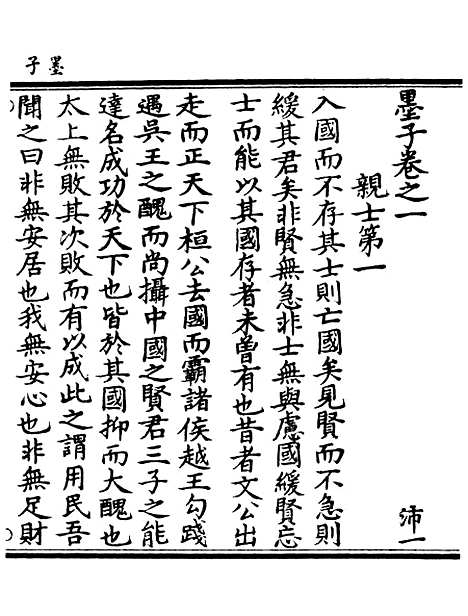 墨子
墨子卷之一
沛一
親士第一
入國而不存其士則亡國矣見賢而不急則
緩其君矣非賢無急非士無與慮國緩賢忘
士而能以其國存者未曽有也昔者文公出
走而正天下桓公去國而霸諸侯越王勾踐
遇吳王之醜而尚攝中國之賢君三子之能
達名成功於天下也皆於其國抑而大醜也
太上無敗其次敗而有以成此之謂用民吾
聞之曰非無安居也我無安心也非無足財